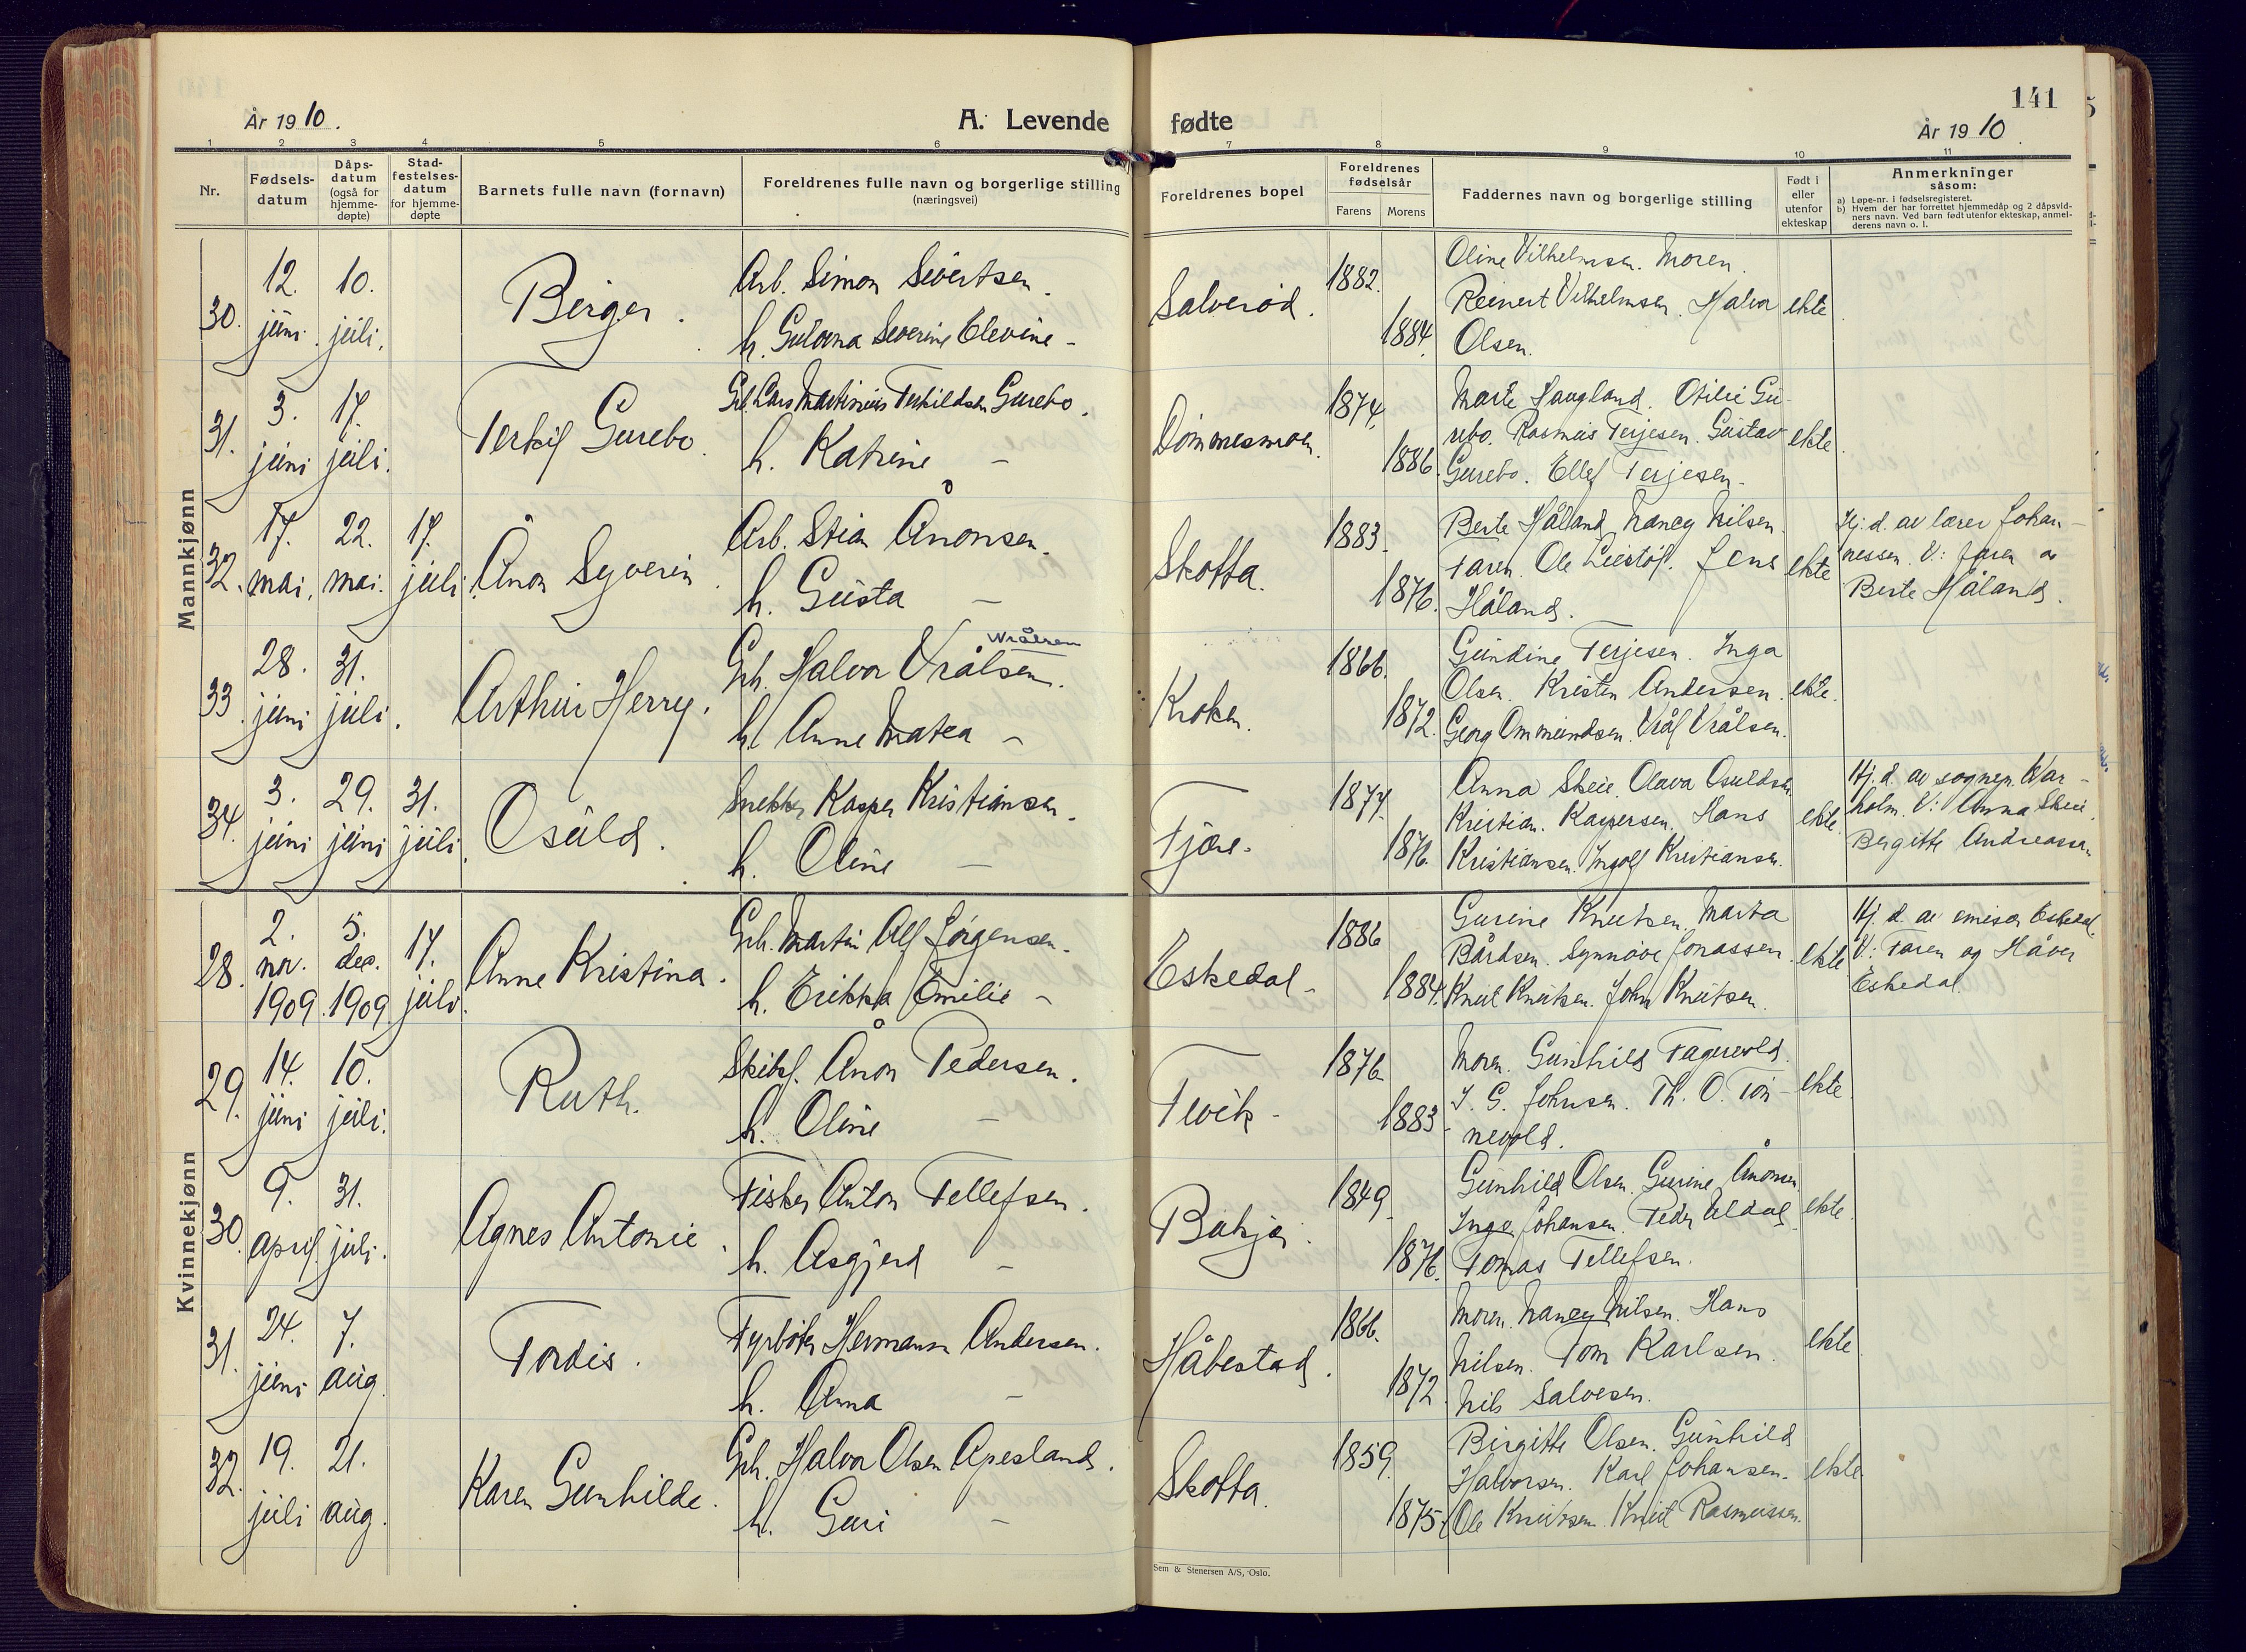 141
År 1910.
A. Levende fødte
År 1910
1 2 3 4 5 6 7 8 9 10 11
Nr.
Fødsels-
datum
Dåps-
datum
(også for
hjemme-
døpte)
Stad-
festelses-
datum
for hjemme-
døpte
Barnets fulle navn (fornavn)
Foreldrenes fulle navn og borgerlige stilling
(næringsvei)
Foreldrenes bopel
Foreldrenes
fødselsår
Farens Morens
Faddernes navn og borgerlige stilling
Født i
eller
utenfor
ekteskap
Anmerkninger
såsom:
a) Løpe-nr. i fødselsregisteret.
b) Hvem der har forrettet hjemmedåp og 2 dåpsvid-
ners navn. Ved barn født utenfor ekteskap, anmel-
derens navn o. l.
Mannkjønn
30. 12. juni. 10. juli. Birger.
Arb. Simon Sivertsen.
h. Gulovna Severine Elevine -
Salverød. 1882. 1884.
Oline Vilhelmsen. Moren.
Reinert Vilhelmsen. Halvor
Olsen.
ekte
31. 3. juni 17. juli. Terkil Gurebo.
Gb. Lars Martinius Terkildsen Gurebo.
h. Katrine -
Dømmesmoen. 1874. 1886.
Marte Haugland. Otilie Gu-
rebo. Rasmus Terjesen. Gustav
Gurebo. Ellef Terjesen.
ekte
32. 17. mai. 22. mai. 17. juli. Ånon Syverin.
Arb. Stian Ånonsen.
h. Gusta -
Skotta. 1883. 1876.
Berte Håland. Nancy Nilsen.
Faren. Ole Liestøl. Jens
Håland.
ekte
Hj. d. av lærer Johan-
nessen. V: faren og
Berte Håland.
33. 28. juni 31. juli. Arthur Herry.
Wrålsen
Gb. Halvor Vrålsen.
h. Anne Matea -
Kroken. 1866. 1872.
Gundine Terjesen. Inga
Olsen. Kristen Andersen.
Georg Ommundsen. Vrål Vrålsen.
ekte.
34. 3. juni 29. juni 31. juli. Osuld.
Snekker Kasper Kristiansen.
h. Oline -
Fjære. 1874. 1876.
Anna Skeie. Olava Osuldsen
Kristian. Kaspersen. Hans
Kristiansen. Ingolf Kristiansen.
ekte.
Hj. d. av sognepr. War-
holm. V: Anna Skeie.
Birgitte Andreassen
Kvinnekjønn
28. 2. nov. 1909. 5. dec. 1909 17. juli. Anne Kristina.
Gb. Martin Alf Jørgensen.
h. Erikka Emilie -
Eskedal - 1886 1884.
Gurine Knutsen. Marta
Bårdsen. Synnøve Jonassen.
Knut Knutsen. John Knutsen.
ekte
Hj. d. av emisær Eskedal.
V: Faren og Håver
Eskedal.
29. 14. juni 10. juli. Ruth.
Skibsf. Ånon Pedersen.
h. Oline -
Fevik - 1876 1883.
Moren. Gunhild Fagervold.
I. G. Johnsen. Th. O. Tøn-
nevold.
ekte.
30. 9. april 31. juli. Agnes Antonie.
Fisker Anton Tellefsen.
h. Asgjerd -
Båkjø. 1849. 1876.
Gunhild Olsen. Gurine Ånonsen.
Inga Johansen. Peder Uldal
Tomas Tellefsen.
ekte.
31. 24. juni 7. aug. Tordis.
Fyrbøter Hermann Andersen.
h. Anna -
Håbestad. 1866. 1872.
Moren. Nancy Nilsen. Hans
Nilsen. Tom Karlsen.
Nils Salvesen.
ekte.
32. 19. juli 21. aug. Karen Gunhilde.
Gb. Halvor Olsen Apesland.
h. Guri -
Skotta. 1859. 1875.
Birgitte Olsen. Gunhild
Halvorsen. Karl Johansen.
Ole Knutsen. Knut Rasmussen.
ekte.
Sem & Stenersen A/S, Oslo.